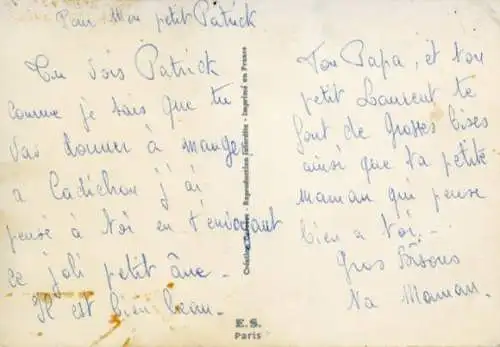 Pour Mon petit Patrick
Tu vois Patrick
comme je sais que tu
vas donner à manger
a Cadichon j'ai
pensé à toi en t'envoyant
ce joli petit âne -
Il est bien beau -
Reproduction interdite - Imprimé en France
Ton Papa, et ton
petit Laurent te
font de Grosses bises
ainsi que ta petite
maman qui pense
bien a toi. -
Gros Bisous
ta Maman.
E.S.
Paris